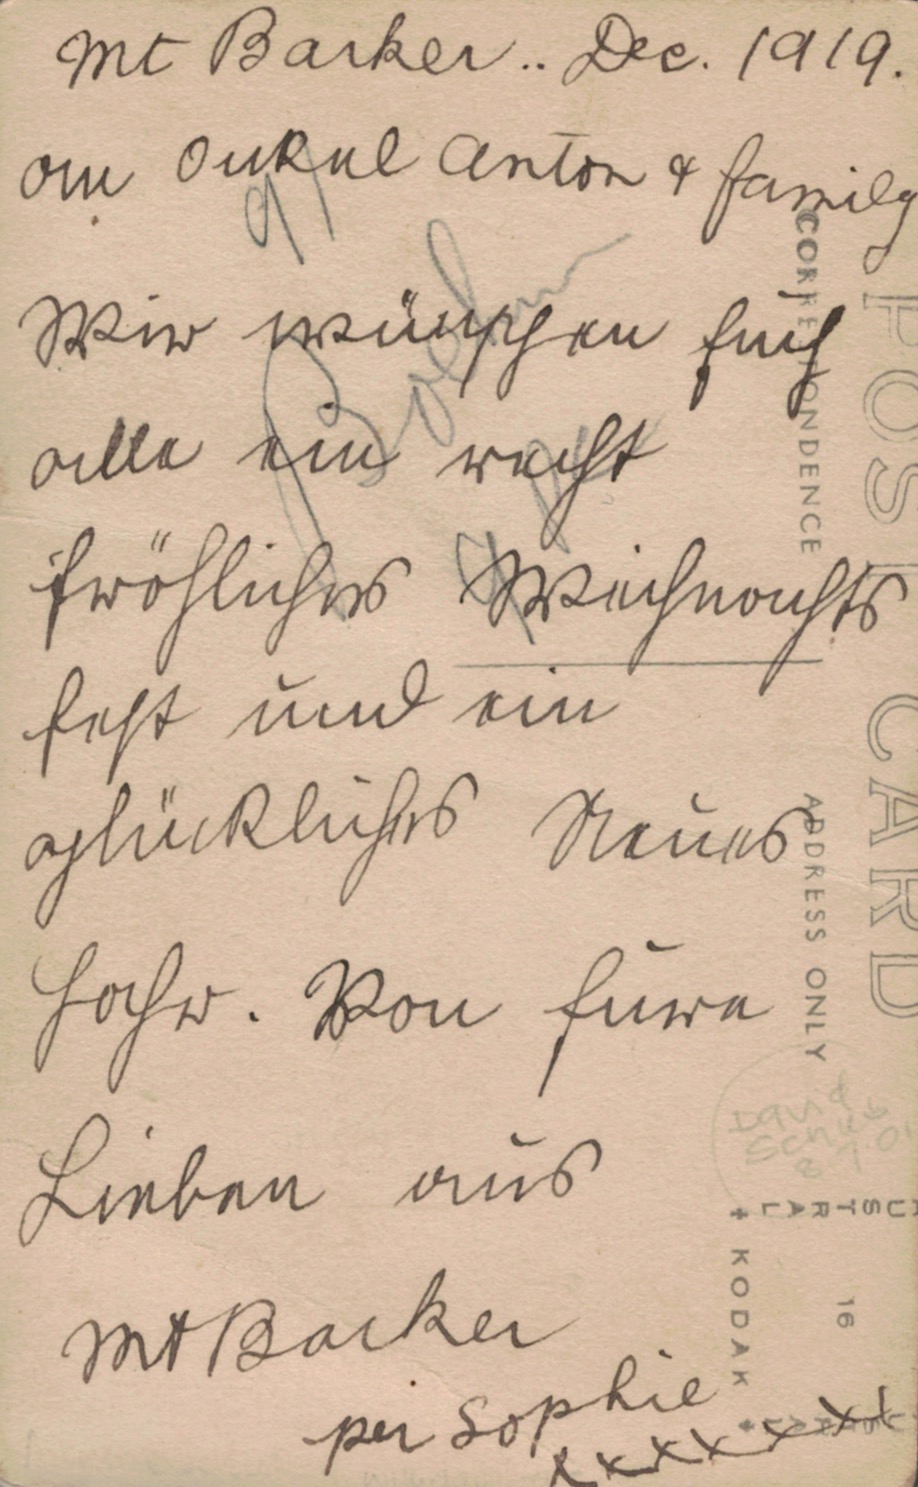 Mt Barker.. Dec. 1919.
An Onkel Anton & Family
Wir wünschen Euch
alle ein recht
fröhliches Weihnachts
fest und ein
glückliches Neues
Jahr. Von Eure
Lieben aus
Mt Barker
per Sophie
xxxxxxx
POST CARD
CORRESPONDENCE
ADDRESS ONLY
David
KODAK
16